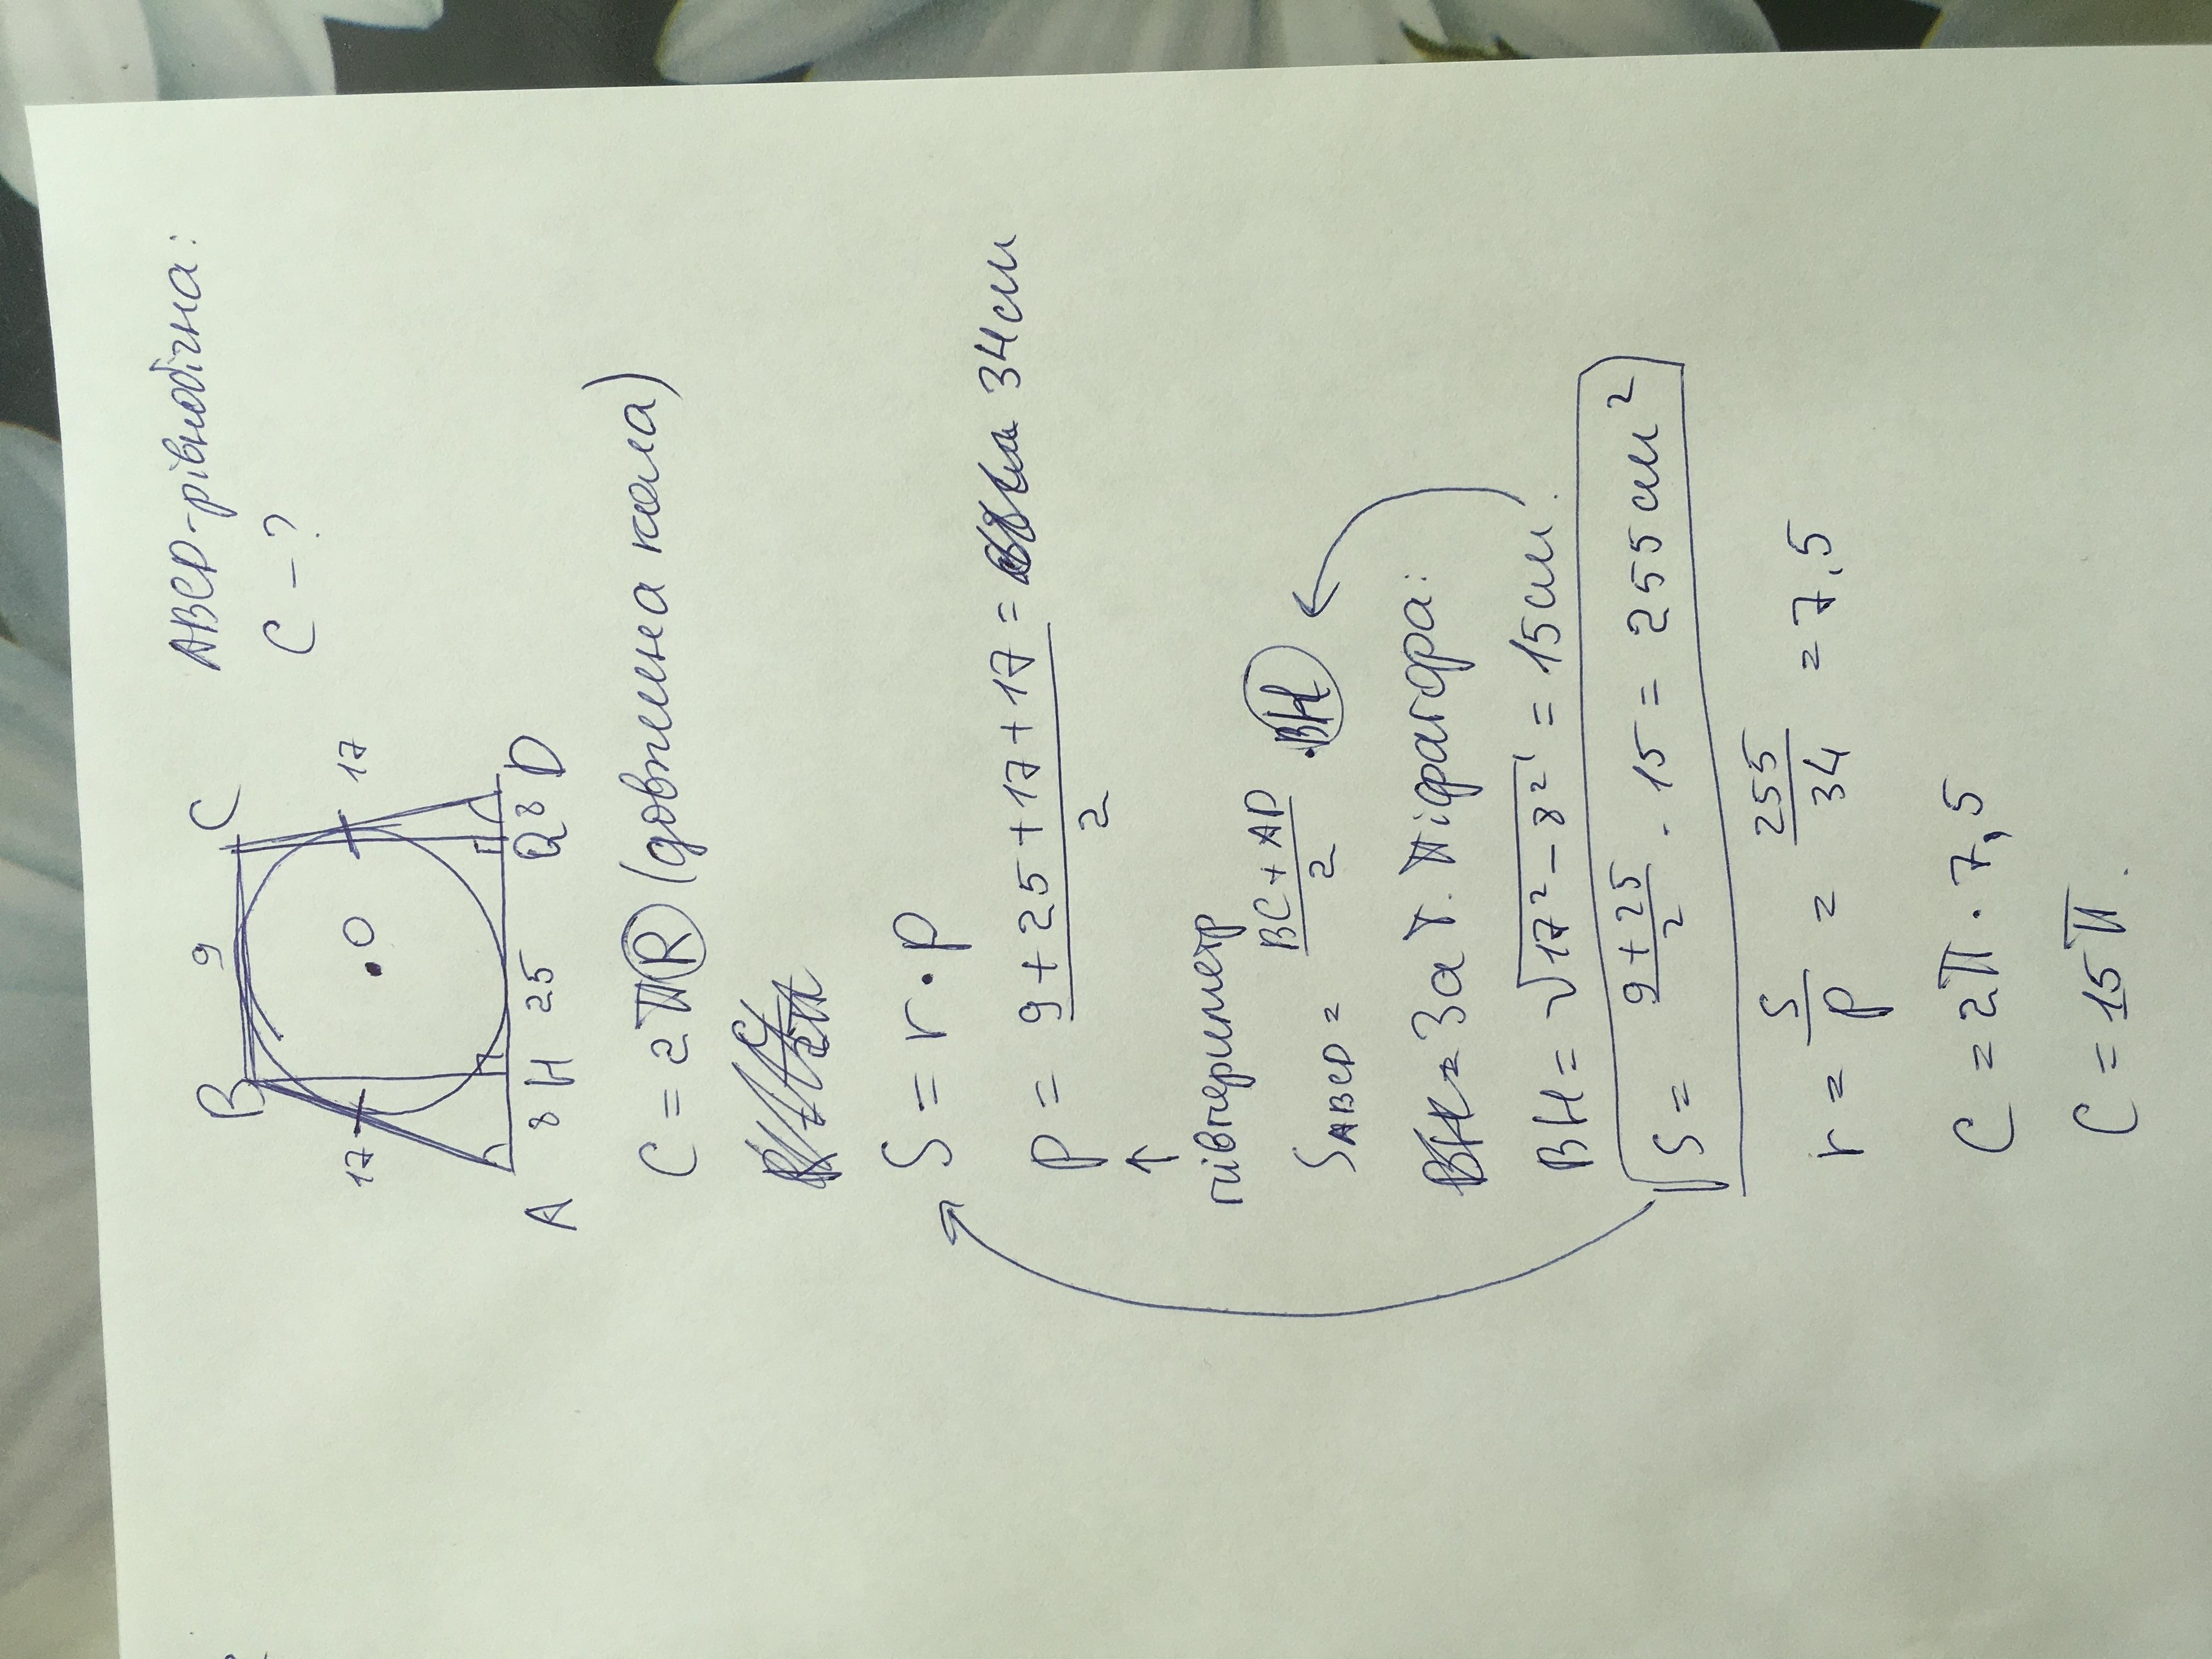 АВСD - рівнобічна:
C - ?
B 9 C
17 17
.O
A 8 H 25 Q 8 D
C = 2πR (довжина кола)
S = r · p
p = \frac{9 + 25 + 17 + 17}{2} = 34 см
↑
півпериметр
S_{ABCD} = \frac{BC + AD}{2} · BH
За т. Піфагора:
BH = \sqrt{17^2 - 8^2} = 15 см.
S = \frac{9 + 25}{2} · 15 = 255 см²
r = \frac{S}{p} = \frac{255}{34} = 7,5
C = 2π · 7,5
C = 15π.